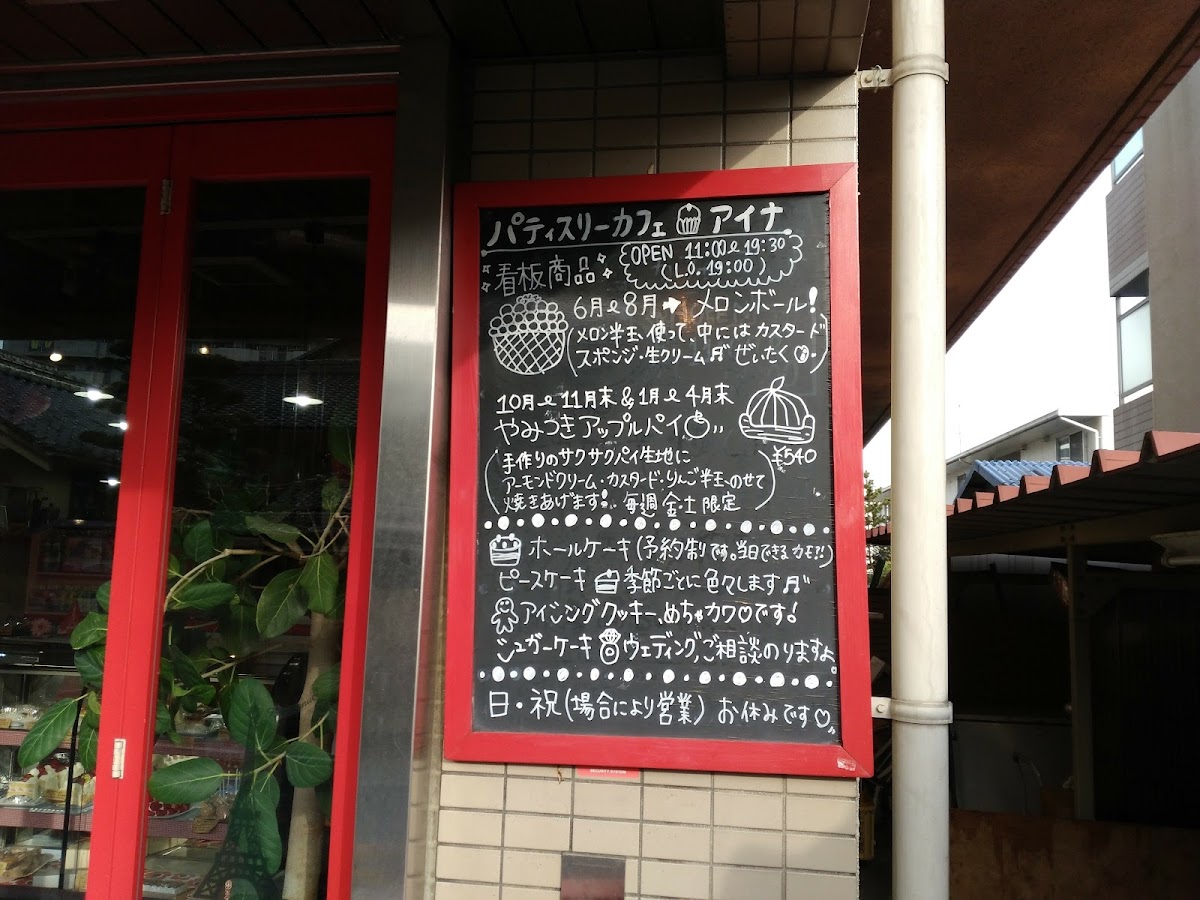 パティスリーカフェ アイナ
OPEN 11:00〜19:30
(L.O. 19:00)
看板商品
6月〜8月➡メロンボール!
(メロン半玉、使って、中にはカスタード
スポンジ・生クリーム♬ぜいたく♡・)
10月〜11月末&1月〜4月末
やみつきアップルパイ
¥540
(手作りのサクサクパイ生地に
アーモンドクリーム・カスタード・りんご半玉、のせて
焼きあげます!! 毎週 金・土 限定)
ホールケーキ(予約制です。当日できるカモ?!)
ピースケーキ 季節ごとに色々します♬
アイシングクッキー、めちゃカワ♡です!
シュガーケーキ ウェディング、ご相談のりますよ。
日・祝(場合により営業) お休みです♡